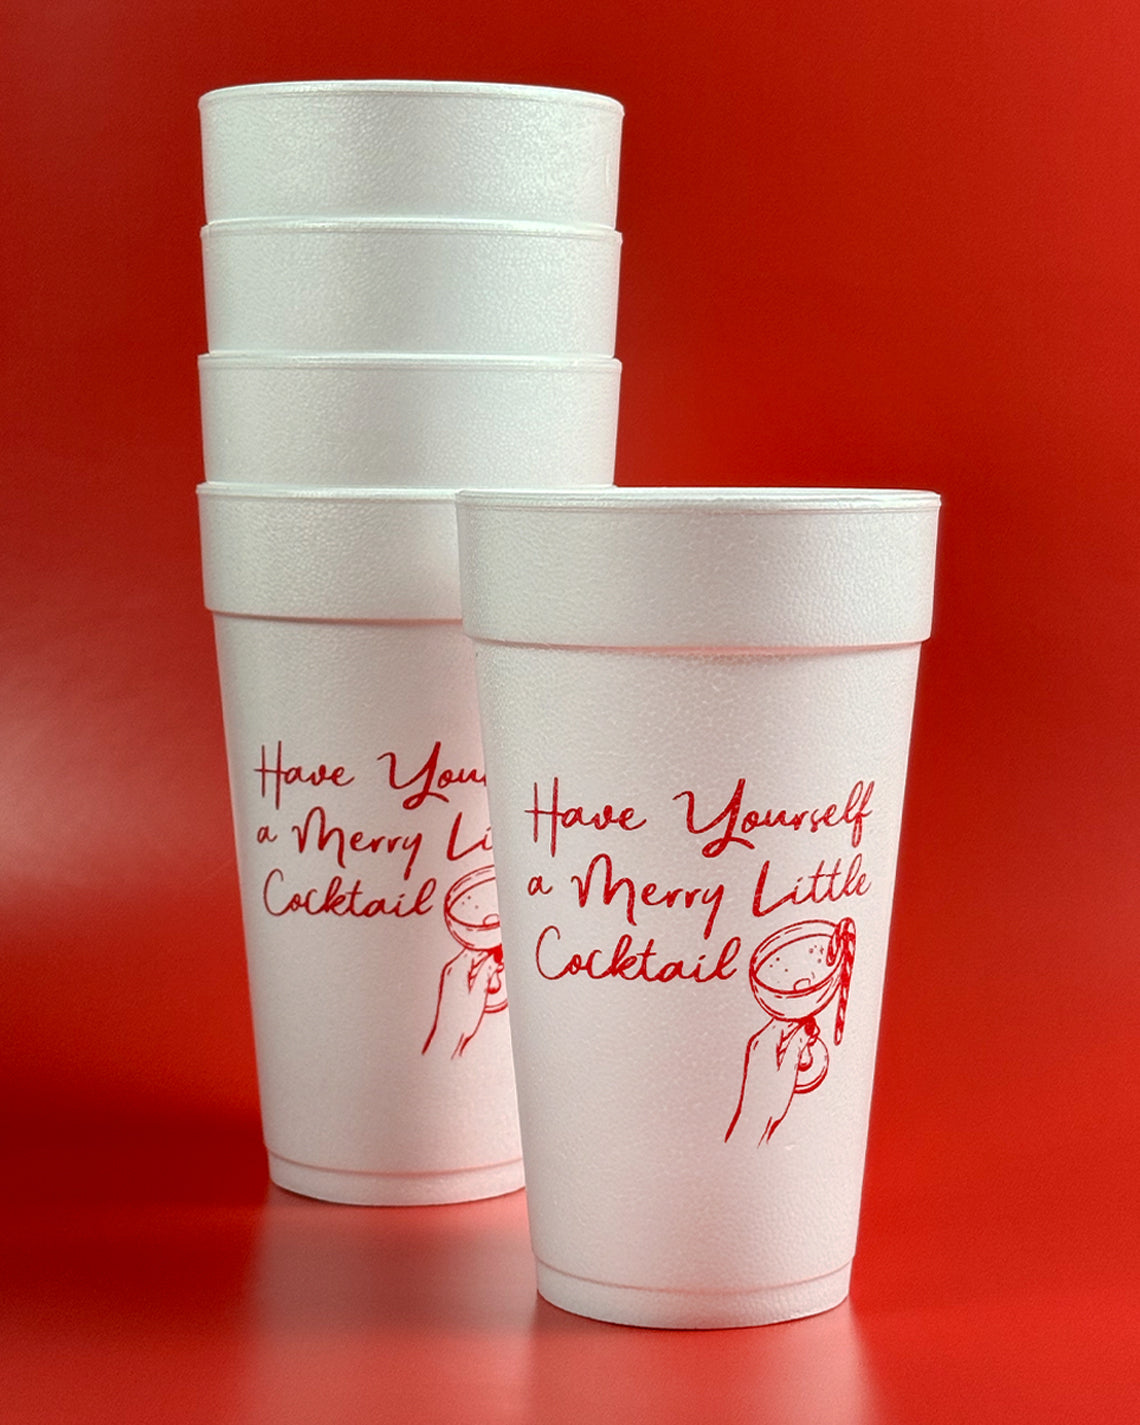 Have You
a Merry Li
Cocktail
Have Yourself
a Merry Little
Cocktail